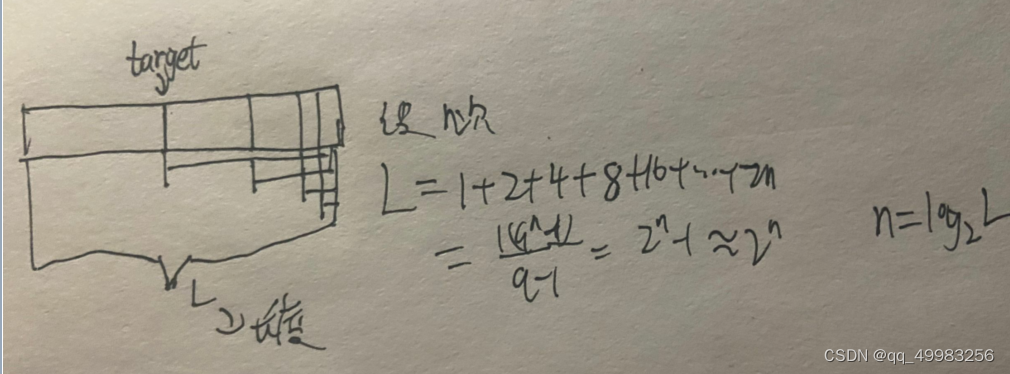 target
设n次
L = 1+2+4+8+16+...+2n
= 1(q^n-1)/q-1 = 2^n-1 ≈ 2^n
n=log₂L
L
长度
CSDN @qq_49983256